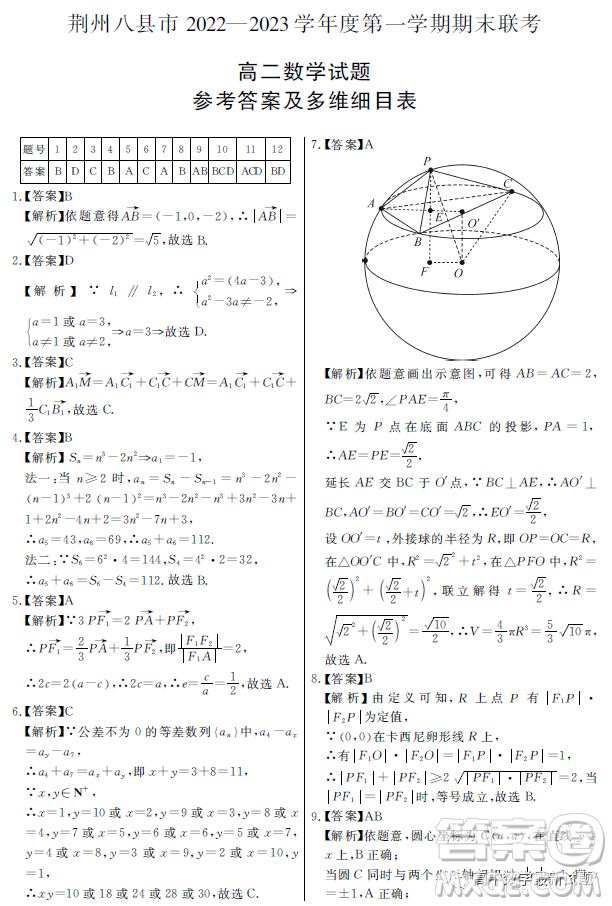 荆州八县市 2022—2023 学年度第一学期期末联考
高二数学试题
参考答案及多维细目表
题号 1 2 3 4 5 6 7 8 9 10 11 12
答案 B D C B A C A B AB BCD ACD BD
1.【答案】B
【解析】依题意得AB→=(-1,0,-2),∴|AB→|=
√((-1)²+(-2)²)=√5,故选 B.
2.【答案】D
【解析】∵ l₁ ∥ l₂, ∴ {a²=(4a-3), a²-3a≠-2, ⇒
{a=1 或 a=3, a≠1 或 a≠2, ⇒a=3⇒故选 D.
3.【答案】C
【解析】A₁M→=A₁C₁→+C₁C→+CM→=A₁C₁→+C₁C→+
1/3 C₁B₁→,故选 C.
4.【答案】B
【解析】Sₙ=n³-2n²⇒a₁=-1,
法一:当 n≥2 时,aₙ=Sₙ-Sₙ₋₁=n³-2n²-
(n-1)³+2(n-1)²=n³-2n²-n³+3n²-3n+
1+2n²-4n+2=3n²-7n+3,
∴a₅=43,a₆=69,∴a₅+a₆=112.
法二:∵S₆=6²·4=144,S₄=4²·2=32,
∴a₅+a₆=S₆-S₄=112.故选 B.
5.【答案】A
【解析】∵3PF₁→=2PA→+PF₂→,
∴PF₁→=2/3 PA→+1/3 PF₂→,即|F₁F₂|/|F₁A|=2,
∴2c=2(a-c),∴2c=a,∴e=c/a=1/2,故选 A.
6.【答案】C
【解析】∵公差不为 0 的等差数列{aₙ}中,a₄-aₓ
=a_y-a₇,
∴a₄+a₇=aₓ+a_y,即 x+y=3+8=11,
∵x,y∈N⁺
∴x=1,y=10 或 x=2,y=9 或 x=3,y=8 或 x
=4,y=7 或 x=5,y=6 或 x=6,y=5 或 x=7,y
=4 或 x=8,y=3 或 x=9,y=2 或 x=10,y
=1,
∴xy=10 或 18 或 24 或 28 或 30,故选 C.
7.【答案】A
P
C
A
E
O′
B
F
O
【解析】依题意画出示意图,可得 AB=AC=2,
BC=2√2,∠PAE=π/4,
∵E 为 P 点在底面 ABC 的投影,PA=1,
∴AE=PE=√2/2,
延长 AE 交 BC 于 O′点,∵BC⊥AE,∴AO′⊥
BC,AO′=BO′=CO′=√2,∴EO′=√2/2,
设 OO′=t,外接球的半径为 R,即 OP=OC=R,
在△OO′C 中,R²=√2²+t²,在△PFO 中,R²=
(√2/2)²+(√2/2+t)²,联立解得 t=√2/2,∴R=
√(√2²+(√2/2)²)=√10/2,∴V=4/3 πR³=5/3 √10 π,
故选 A.
8.【答案】B
【解析】由定义可知,R 上点 P 有 |F₁P|·
|F₂P|为定值,
∵(0,0)在卡西尼卵形线 R 上,
∴有|F₁O|·|F₂O|=|F₁P|·|F₂P|=1,
∴|PF₁|+|PF₂|≥2√(|PF₁|·|PF₂|)=2,当
|PF₁|=|PF₂|时,等号成立,故选 B.
9.【答案】AB
【解析】依题意,圆心坐标为 C(a,a),在直线 y=
x 上,B 正确;
当圆 C 同时与两个坐标
=±1,A 正确;
答案圈